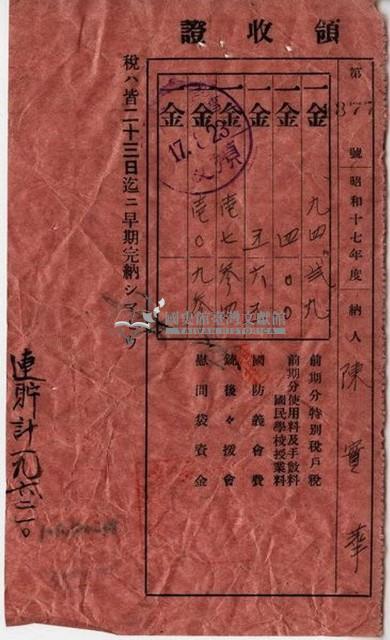 領收證
第 877 號 昭和十七年度 納人 陳寶華
一金 九四貳九 前期分特別稅戶稅
一金 四〇〇 前期分使用料及手數料 國民學校授業料
一金 五六五 國防義會費
一金 壱七参四 銃後々援會
一金 壱〇九参 慰問袋資金
金
17. 23
稅ハ皆二十三日迄ニ早期完納シマセウ
連貯計九六二一〇
國史館臺灣文獻館
TAIWAN HISTORICA